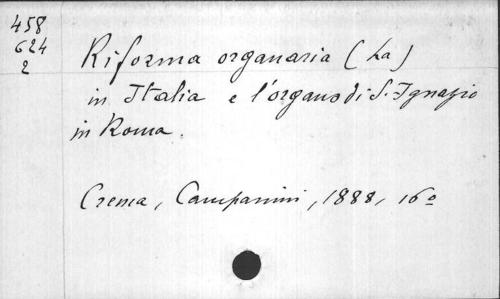 458
624
2
Riforma organaria (La)
in Italia e l'organo di S. Ignazio
in Roma.
Crema, Campanini, 1888, 16º